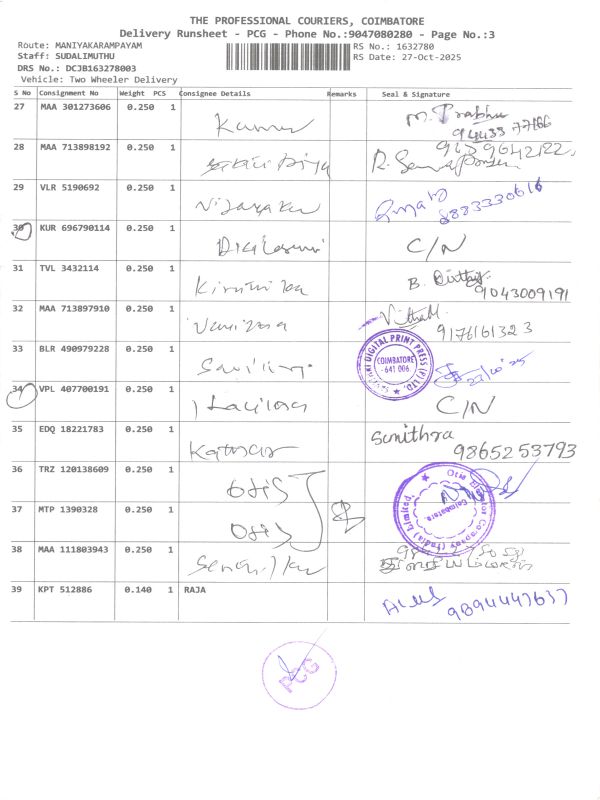 THE PROFESSIONAL COURIERS, COIMBATORE
Delivery Runsheet - PCG - Phone No.:9047080280 - Page No.:3
Route: MANIYAKARAMPAYAM RS No.: 1632780
Staff: SUDALIMUTHU RS Date: 27-Oct-2025
DRS No.: DCJB163278003
Vehicle: Two Wheeler Delivery
S No Consignment No Weight PCS Consignee Details Remarks Seal & Signature
27 MAA 301273606 0.250 1 Kumar M. Prabhu
94433 77166
28 MAA 713898192 0.250 1
29 VLR 5190692 0.250 1 Vijayaku
8883330616
30 KUR 696790114 0.250 1 C/N
31 TVL 3432114 0.250 1 B.
9043009191
32 MAA 713897910 0.250 1
9176161323
33 BLR 490979228 0.250 1 DIGITAL PRINT PRESS (P) LTD.
COIMBATORE
-641 006.
34 VPL 407700191 0.250 1 C/N
35 EDQ 18221783 0.250 1 Sanithra
9865253793
36 TRZ 120138609 0.250 1 Otis Otis Elevator Company (India) Limited
Coimbatore
37 MTP 1390328 0.250 1 Otis
38 MAA 111803943 0.250 1
39 KPT 512886 0.140 1 RAJA
9894447637
PCG